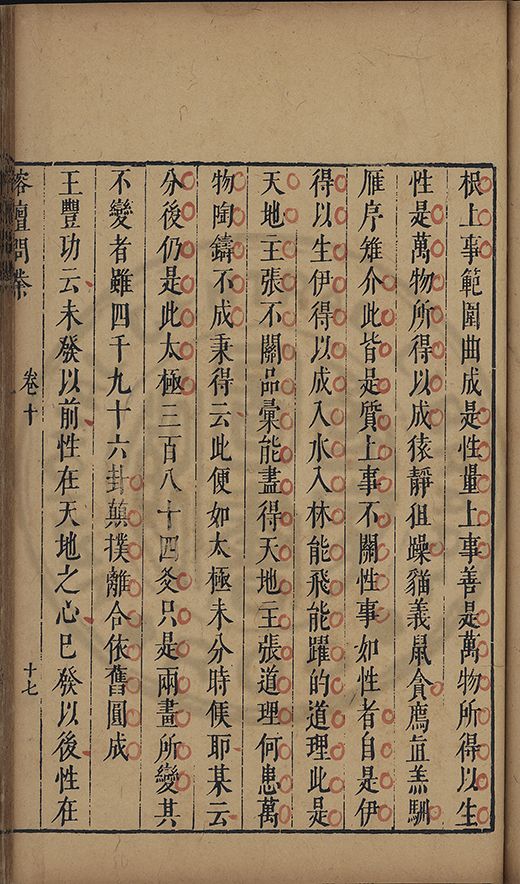 根上事範圍曲成是性量上事善是萬物所得以生
性是萬物所得以成猿靜狙躁貓義鼠貪鷹直羔馴
雁序雉介此皆是質上事不關性事如性者自是伊
得以生伊得以成入水入林能飛能躍的道理此是
天地主張不關品彙能盡得天地主張道理何患萬
物陶鑄不成秉得云此便如太極未分時候耶某云
分後仍是此太極三百八十四爻只是兩畫所變其
不變者雖四千九十六卦蓏撲離合依舊圓成
王豐功云未發以前性在天地之心已發以後性在
榕壇問業
卷十
十七